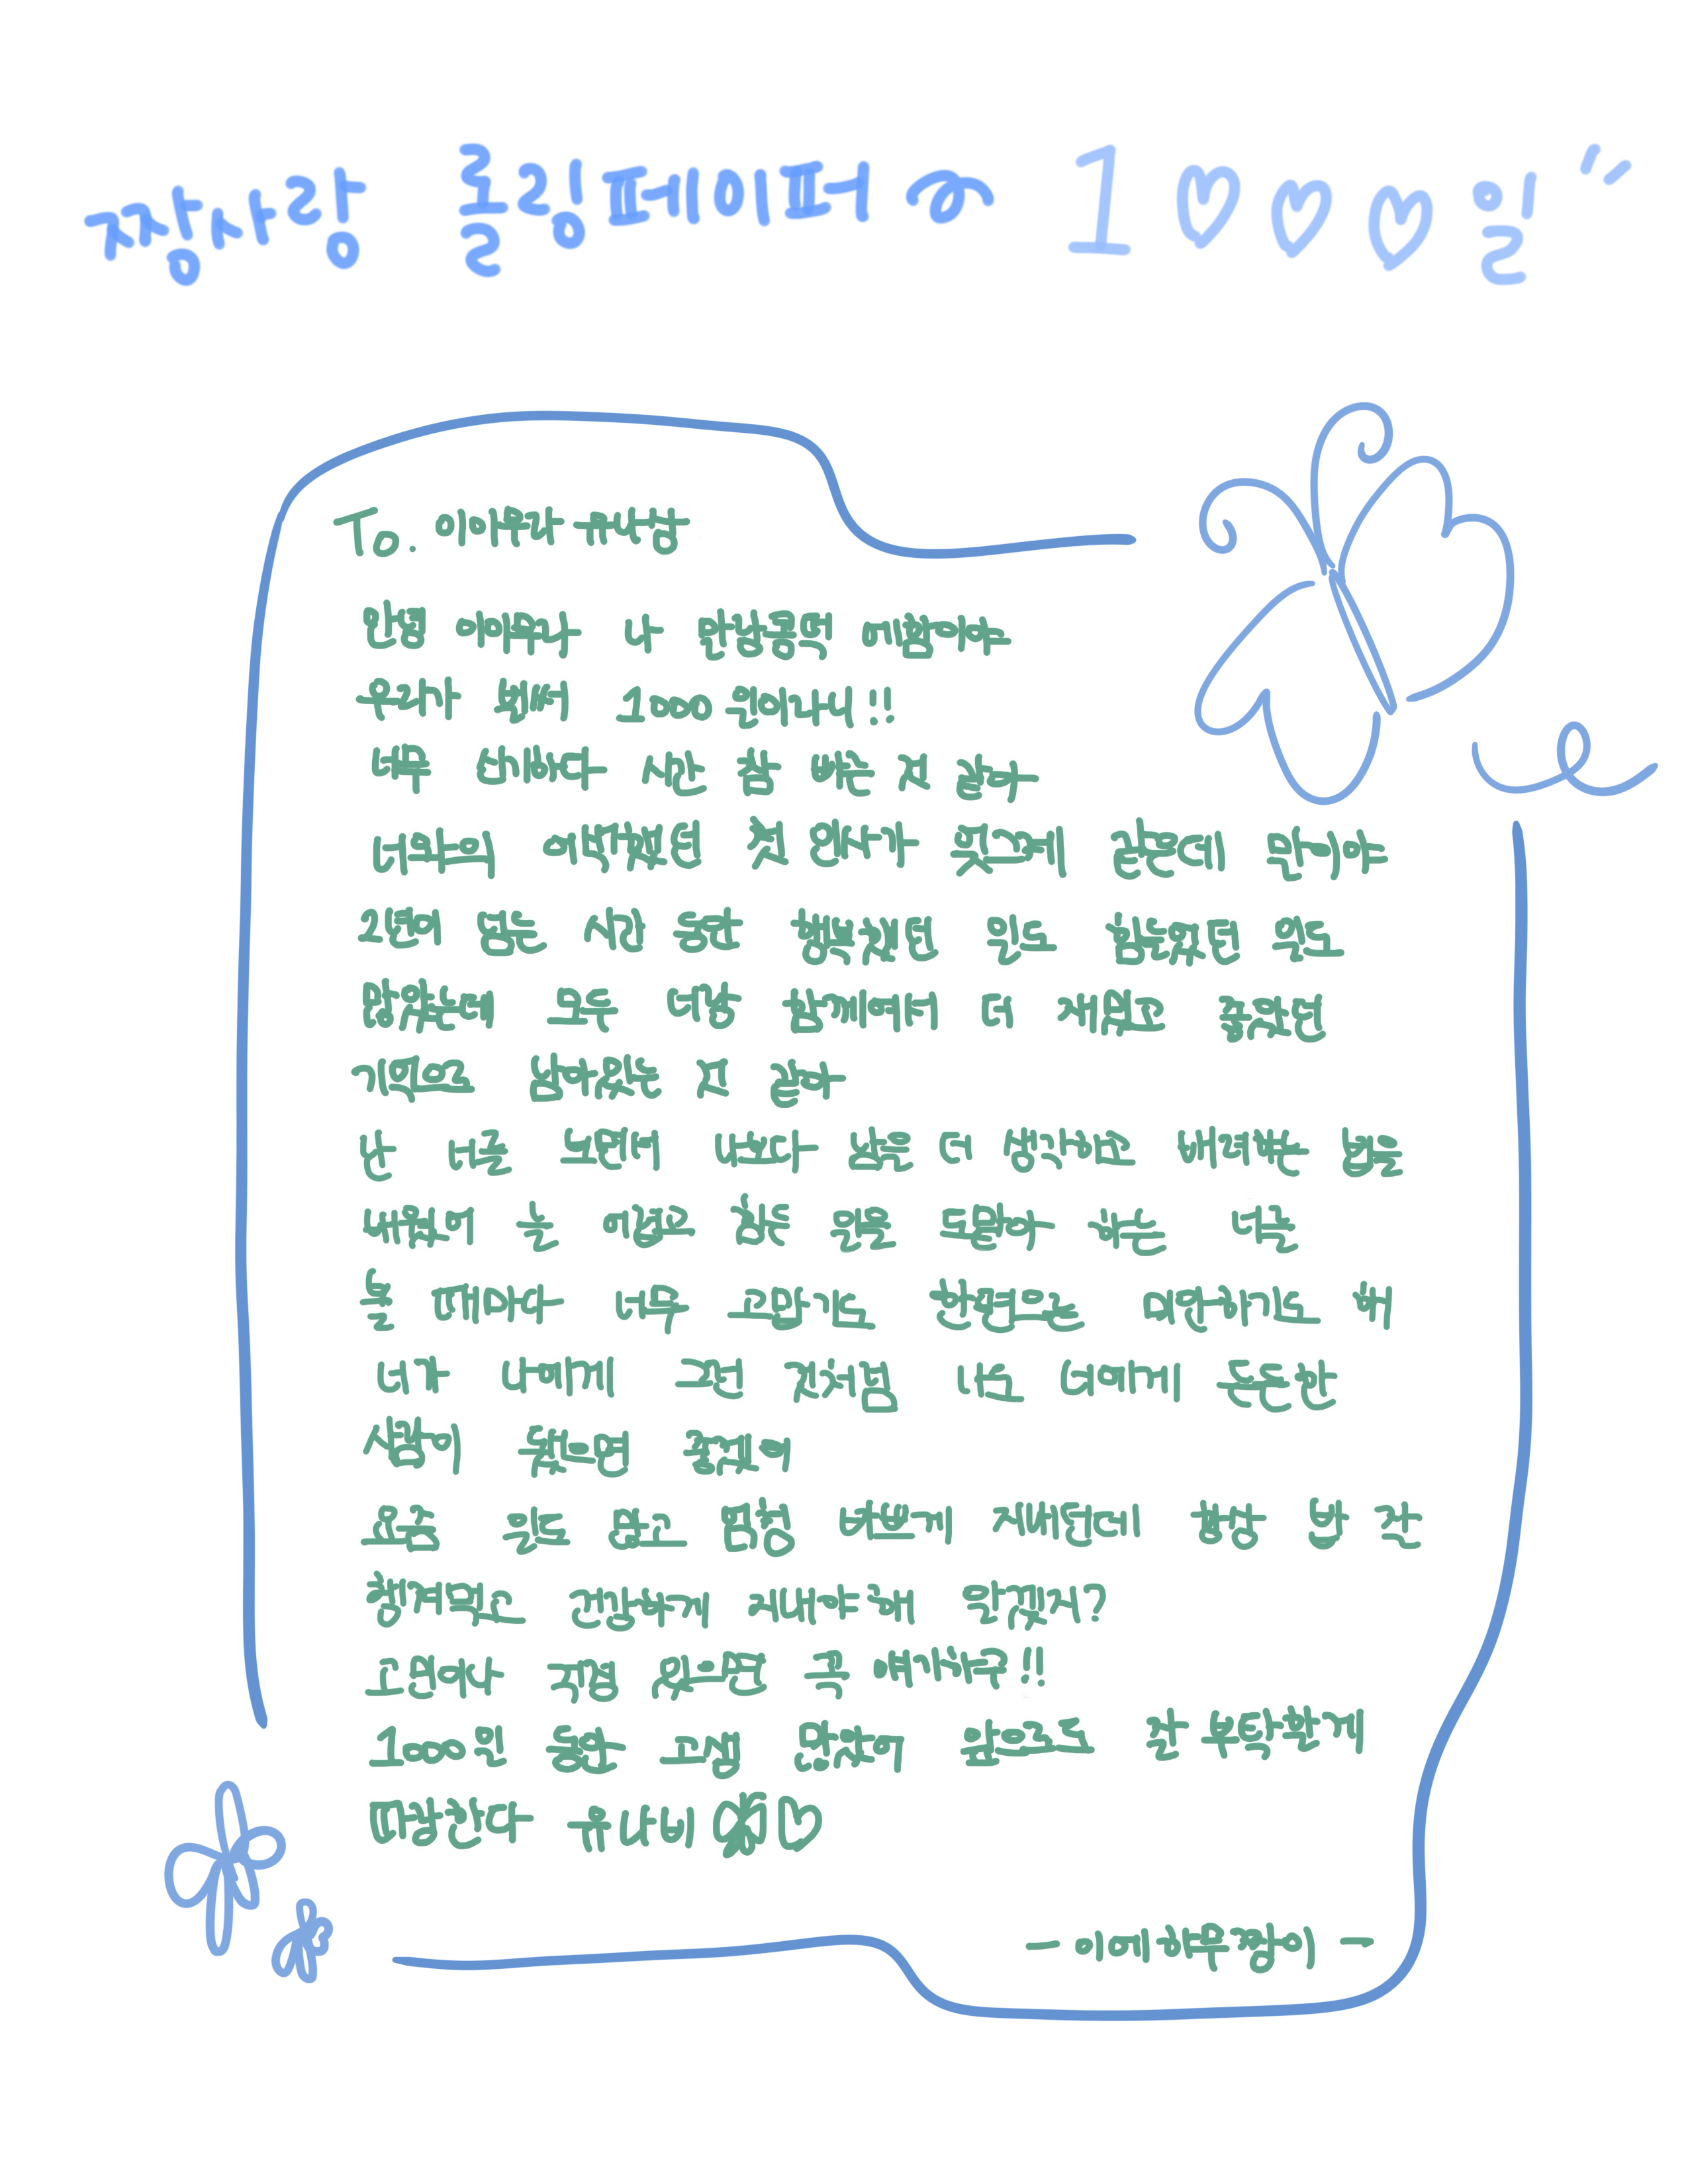 짱사랑 롤링페이퍼 1000일
To. 이아무개 유나양
안녕 나
우리가 벌써 1000일이라니!!
너무 신기하다 시간 참 빠른 것 같아
너와의 어색했던 첫 인사가 엊그제 같은데 말이야
2년이 넘는 시간 동안 행복했던 일도 힘들었던 일도
많았는데 모두 너랑 함께여서 더 재밌고 즐거웠던
기억으로 남아있는 것 같아
난 너를 보면서 나보다 남을 더 생각하고 배려하는 법을
배웠어 늘 어렵고 힘든 일을 도맡아 하는 너를
볼 때마다 너무 고맙기도 한편으론 미안하기도 해
너가 나에게 그런 것처럼 나도 너에게 든든한
사람이 됐으면 좋겠어
요즘 일도 많고 엄청 바쁘게 지내던데 항상 밥 잘
챙겨먹고 건강하게 지내야해 알겠지?
고민이나 걱정 있으면 꼭 얘기하구!!
1000일 동안 고생 많았어 앞으로도 잘 부탁할게
따랑한다 유나비 ♡